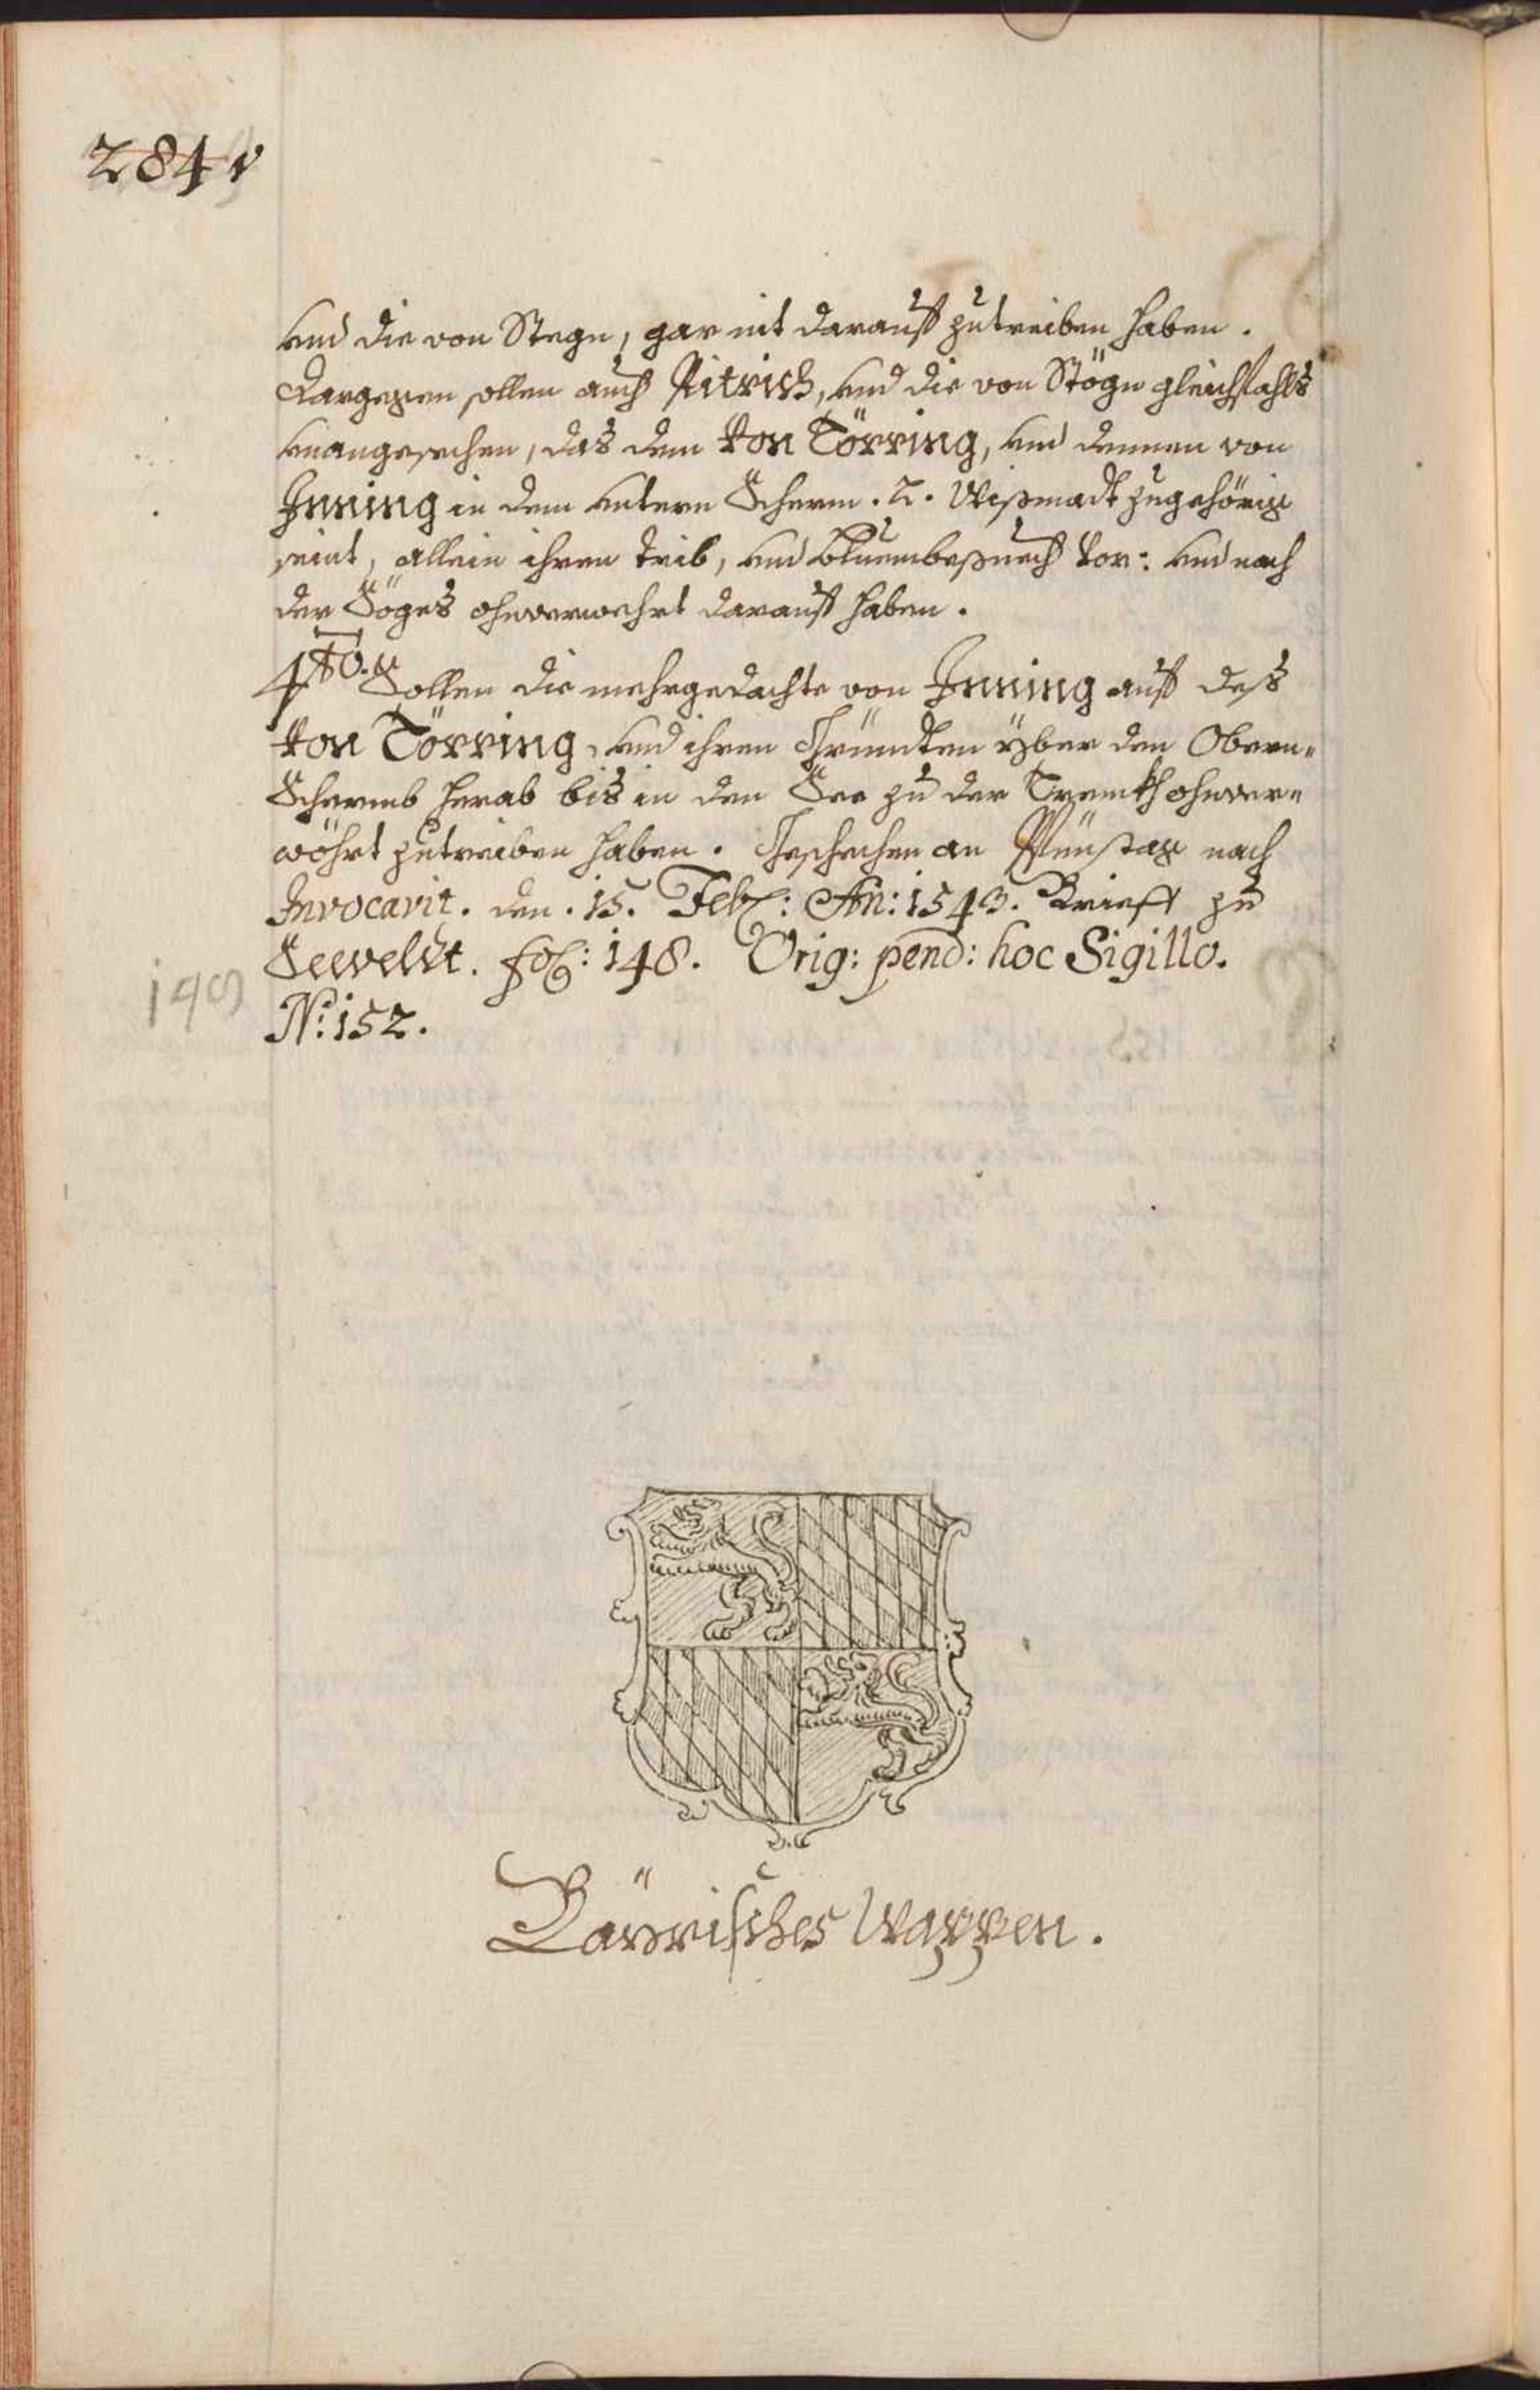 284v
und die von Stegn, gar nit darauff zutreiben haben.
Dargegen sollen auch Ritrich, und die von Stögn gleichfahls
unangesechen, das dem von Törring, und dennen von
Inning in dem untern Scherm. 2. Wißmadt zugehörig
seint, allein ihren trib, und Bluembesuech vor: und nach
der Söges ohnverwehrt darauff haben.
4to. Sollen die mehrgedachte von Inning auff deß
von Törring, und ihren Gründten yber den Obern-
Schermb herab bis in den See zu der Trenckh ohnver-
wöhrt zutreiben haben. Geschechen an Pfinstag nach
Invocavit. den. 15. Feb: An: 1543. Brieff zu
Seeveldt. fol: 148. Orig: pend: hoc Sigillo.
149
N: 152.
Bäyrisches Wappen.